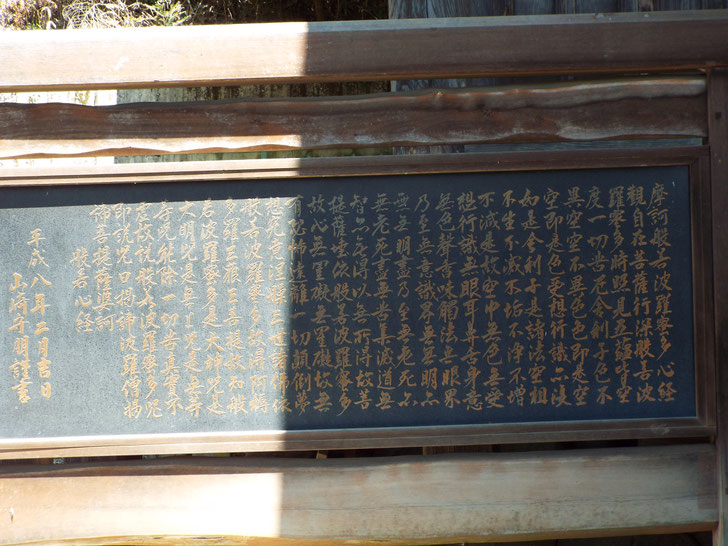 摩訶般若波羅蜜多心経
観自在菩薩行深般若波
羅蜜多時照見五蘊皆空
度一切苦厄舎利子色不
異空空不異色色即是空
空即是色受想行識亦復
如是舎利子是諸法空相
不生不滅不垢不浄不増
不減是故空中無色無受
想行識無眼耳鼻舌身意
無色聲香味觸法無眼界
乃至無意識界無無明亦
無無明盡乃至無老死亦
無老死盡無苦集滅道無
智亦無得以無所得故菩
提薩埵依般若波羅蜜多
故心無罣礙無罣礙故無
有恐怖遠離一切顛倒夢
想究竟涅槃三世諸佛依
般若波羅蜜多故得阿耨
多羅三藐三菩提故知般
若波羅蜜多是大神呪是
大明呪是無上呪是無等
等呪能除一切苦真實不
虚故説般若波羅蜜多呪
即説呪曰掲諦波羅僧掲
諦菩提薩婆訶
般若心経
平成八年二月吉日
山崎寺明謹書